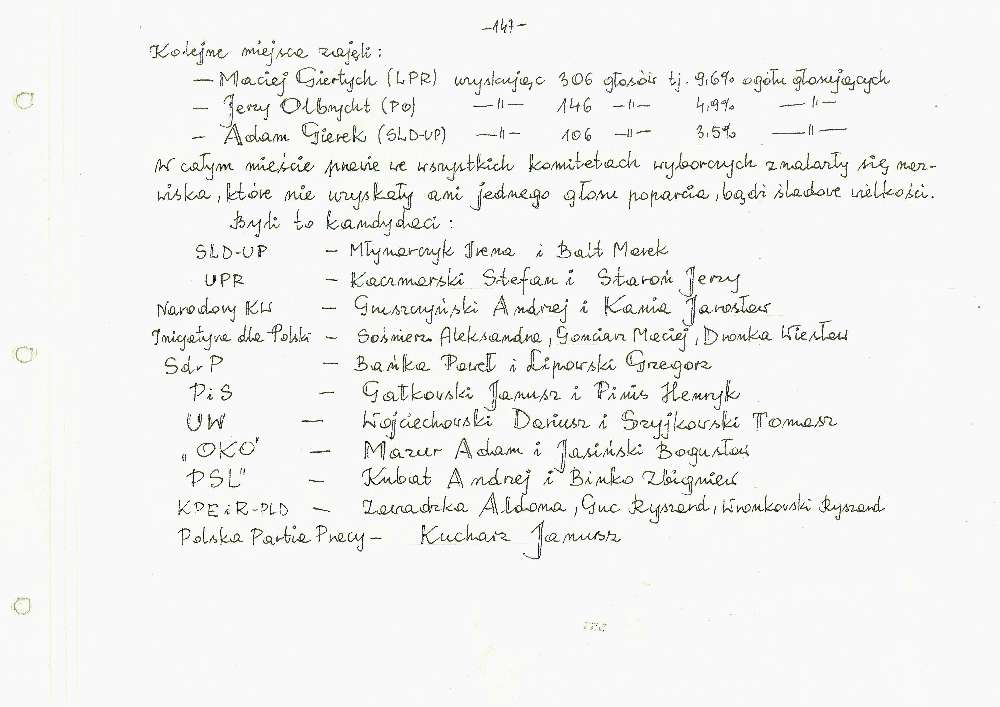 -147-
Kolejne miejsca zajęli:
— Maciej Giertych (LPR) wyskując 306 głosów tj. 9,6% ogółu głosujących
— Jerzy Olbrycht (PO) —"— 146 —"— 4,9% —"—
— Adam Gierek (SLD-UP) —"— 106 —"— 3,5% —"—
W całym mieście prawie we wszystkich komitetach wyborczych znalazły się naz-
wiska, które nie uzyskały ani jednego głosu poparcia, bądź śladowe wielkości.
Byli to kandydaci:
SLD-UP — Młynarczyk Irena i Balt Marek
UPR — Kaczmarski Stefan i Staroń Jerzy
Narodowy KW — Gruszczyński Andrzej i Kania Jarosław
Inicjatywa dla Polski — Sośnierz Aleksandra, Gonciarz Maciej, Dronka Wiesław
SdrP — Bańka Paweł i Lipowski Grzegorz
PiS — Gałkowski Janusz i Pinis Henryk
UW — Wojciechowski Dariusz i Szyjkowski Tomasz
„OKO" — Mazur Adam i Jasiński Bogusław
PSL" — Kubat Andrzej i Binko Zbigniew
KPEiR-PLD — Zawadzka Aldona, Guc Ryszard, Wronkowski Ryszard
Polska Partia Pracy — Kucharz Janusz